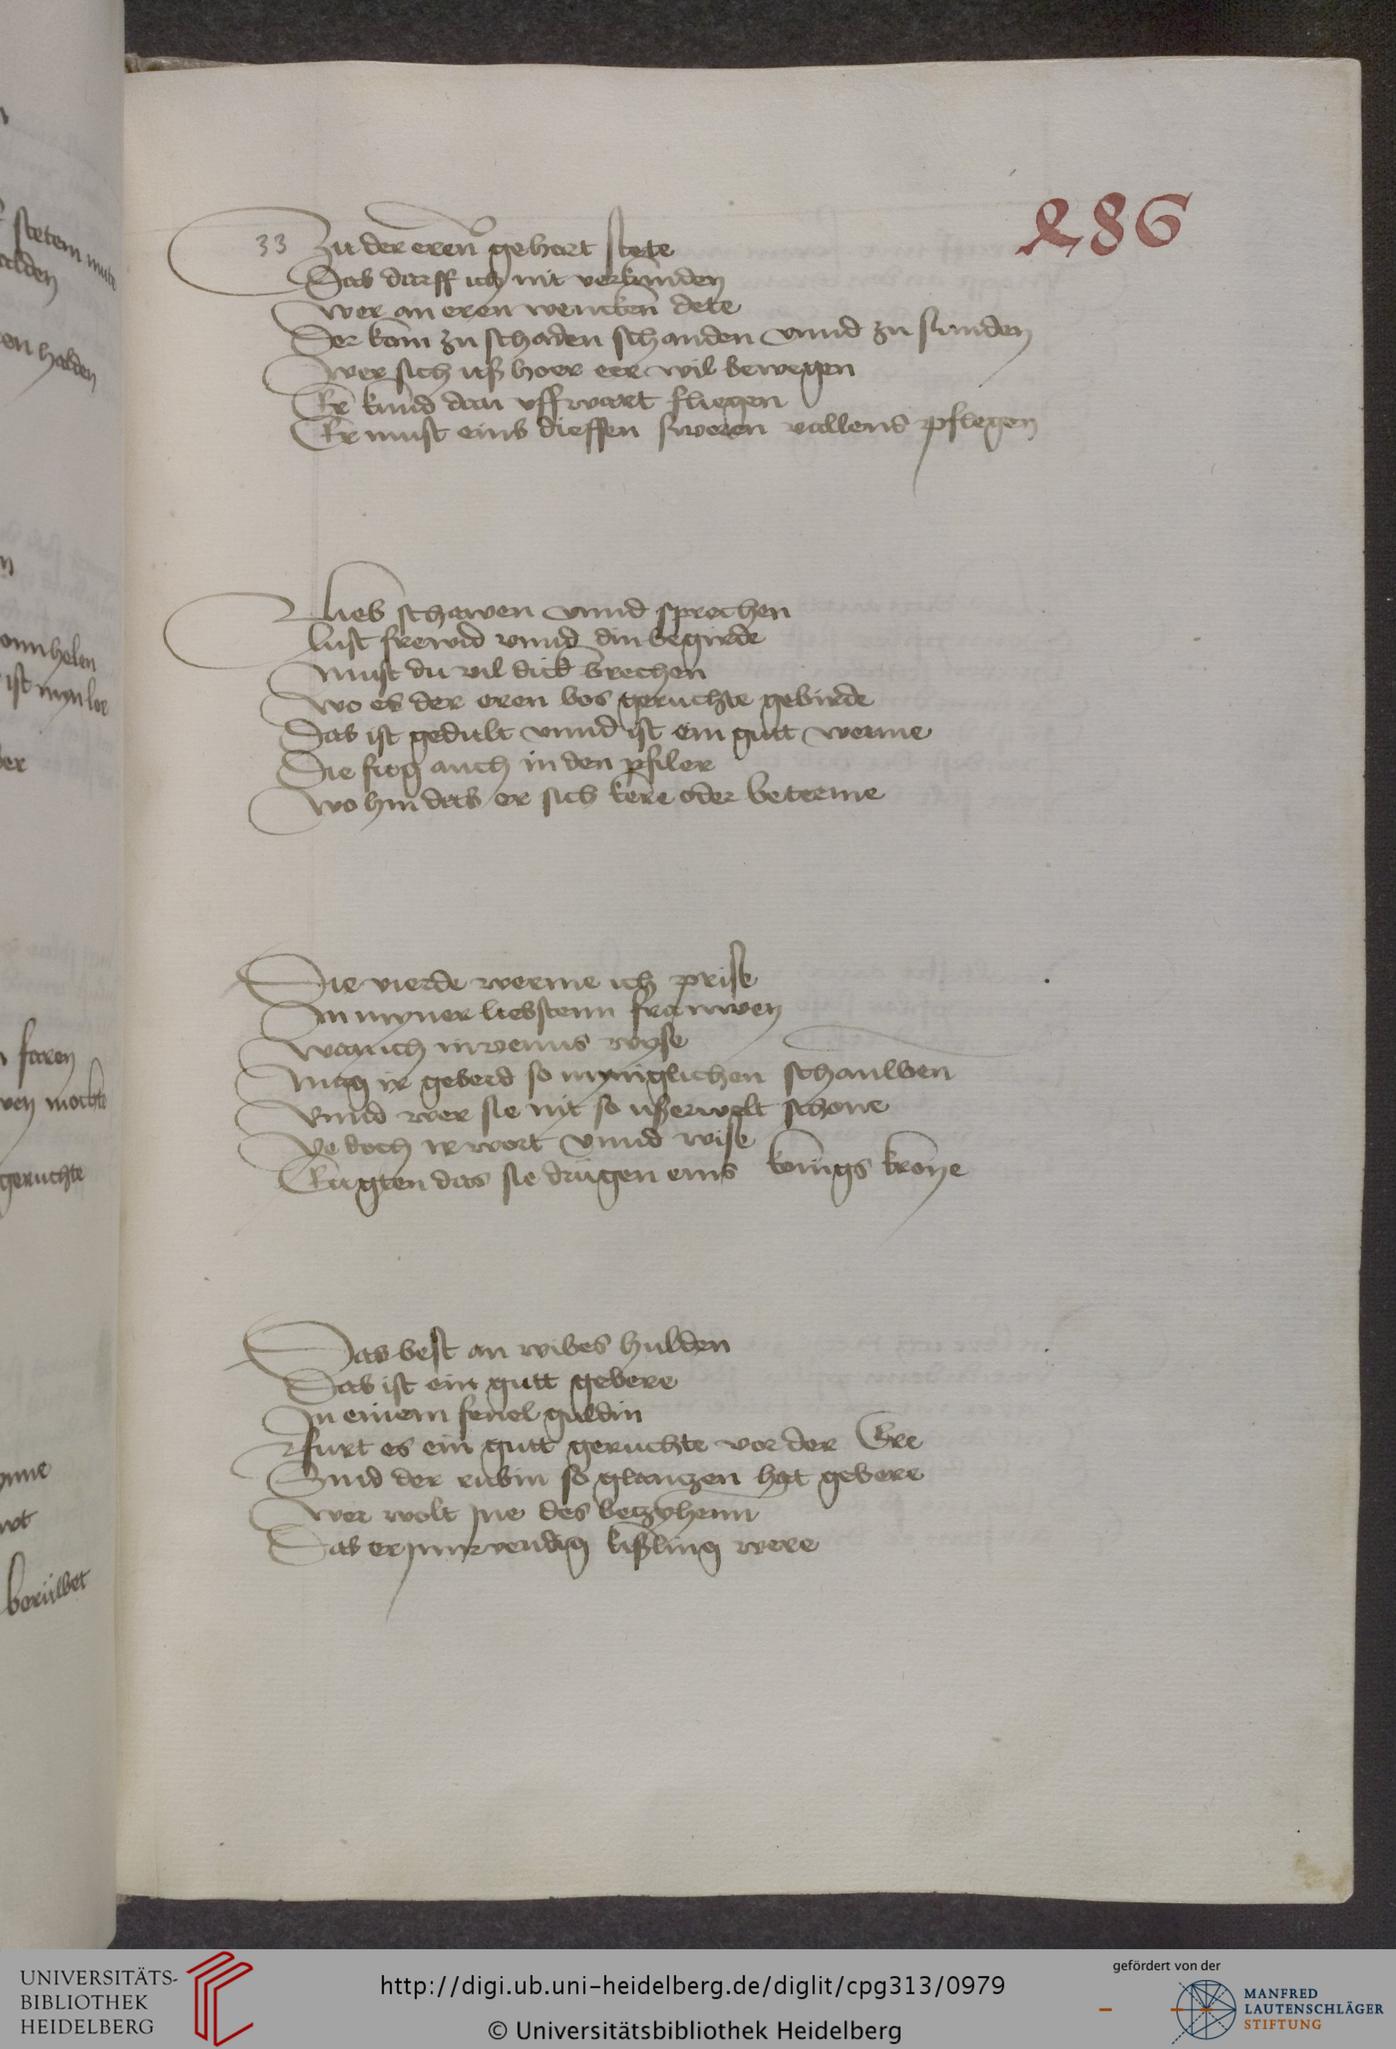 486
33 Zu der eren gehort stete
Das darff ich nit verkunden
Wer an eren wencken dete
Der kom zu schaden schanden vnnd zu sunden
Wer sich uß hoer eer wil bewegen
Er kund dan vffwart fliegen
Er must eins dieffen sweren vallens pflegen
Lieb schawen vnnd sprechen
lust frewd vnnd din begirde
Must du vil dick brechen
Wo es der eren bos geruchte gebirde
Das ist gedult vnnd ist ein gutt werme
Die fug auch in den pfiler
Wo hin das er sich kere oder beterme
Die vierde werme ich prise
In myner liebstenn frauwen
Wan ich in venus wyse
Mag ir geberd so mynniglichen schauwen
Vnnd wer sie nit so ußerwelt schone
Ye doch ir wort vnnd wise
Tugten das sie drugen eins konigs krone
Das best an wibes hulden
Das ist ein gutt gebere
In einem fenel guldin
furt es ein gutt geruchte vor der Ere
Sind der rubin so glanczen hat gebere
Wer wolt jne des beczyhenn
Das er jnnwendig kißling were
stetem mute
halden
en halden
onn helen
ist myn ler
faren
mochte
geruchte
UNIVERSITÄTS-
BIBLIOTHEK
HEIDELBERG
http://digi.ub.uni-heidelberg.de/diglit/cpg313/0979
© Universitätsbibliothek Heidelberg
gefördert von der
MANFRED
LAUTENSCHLÄGER
STIFTUNG